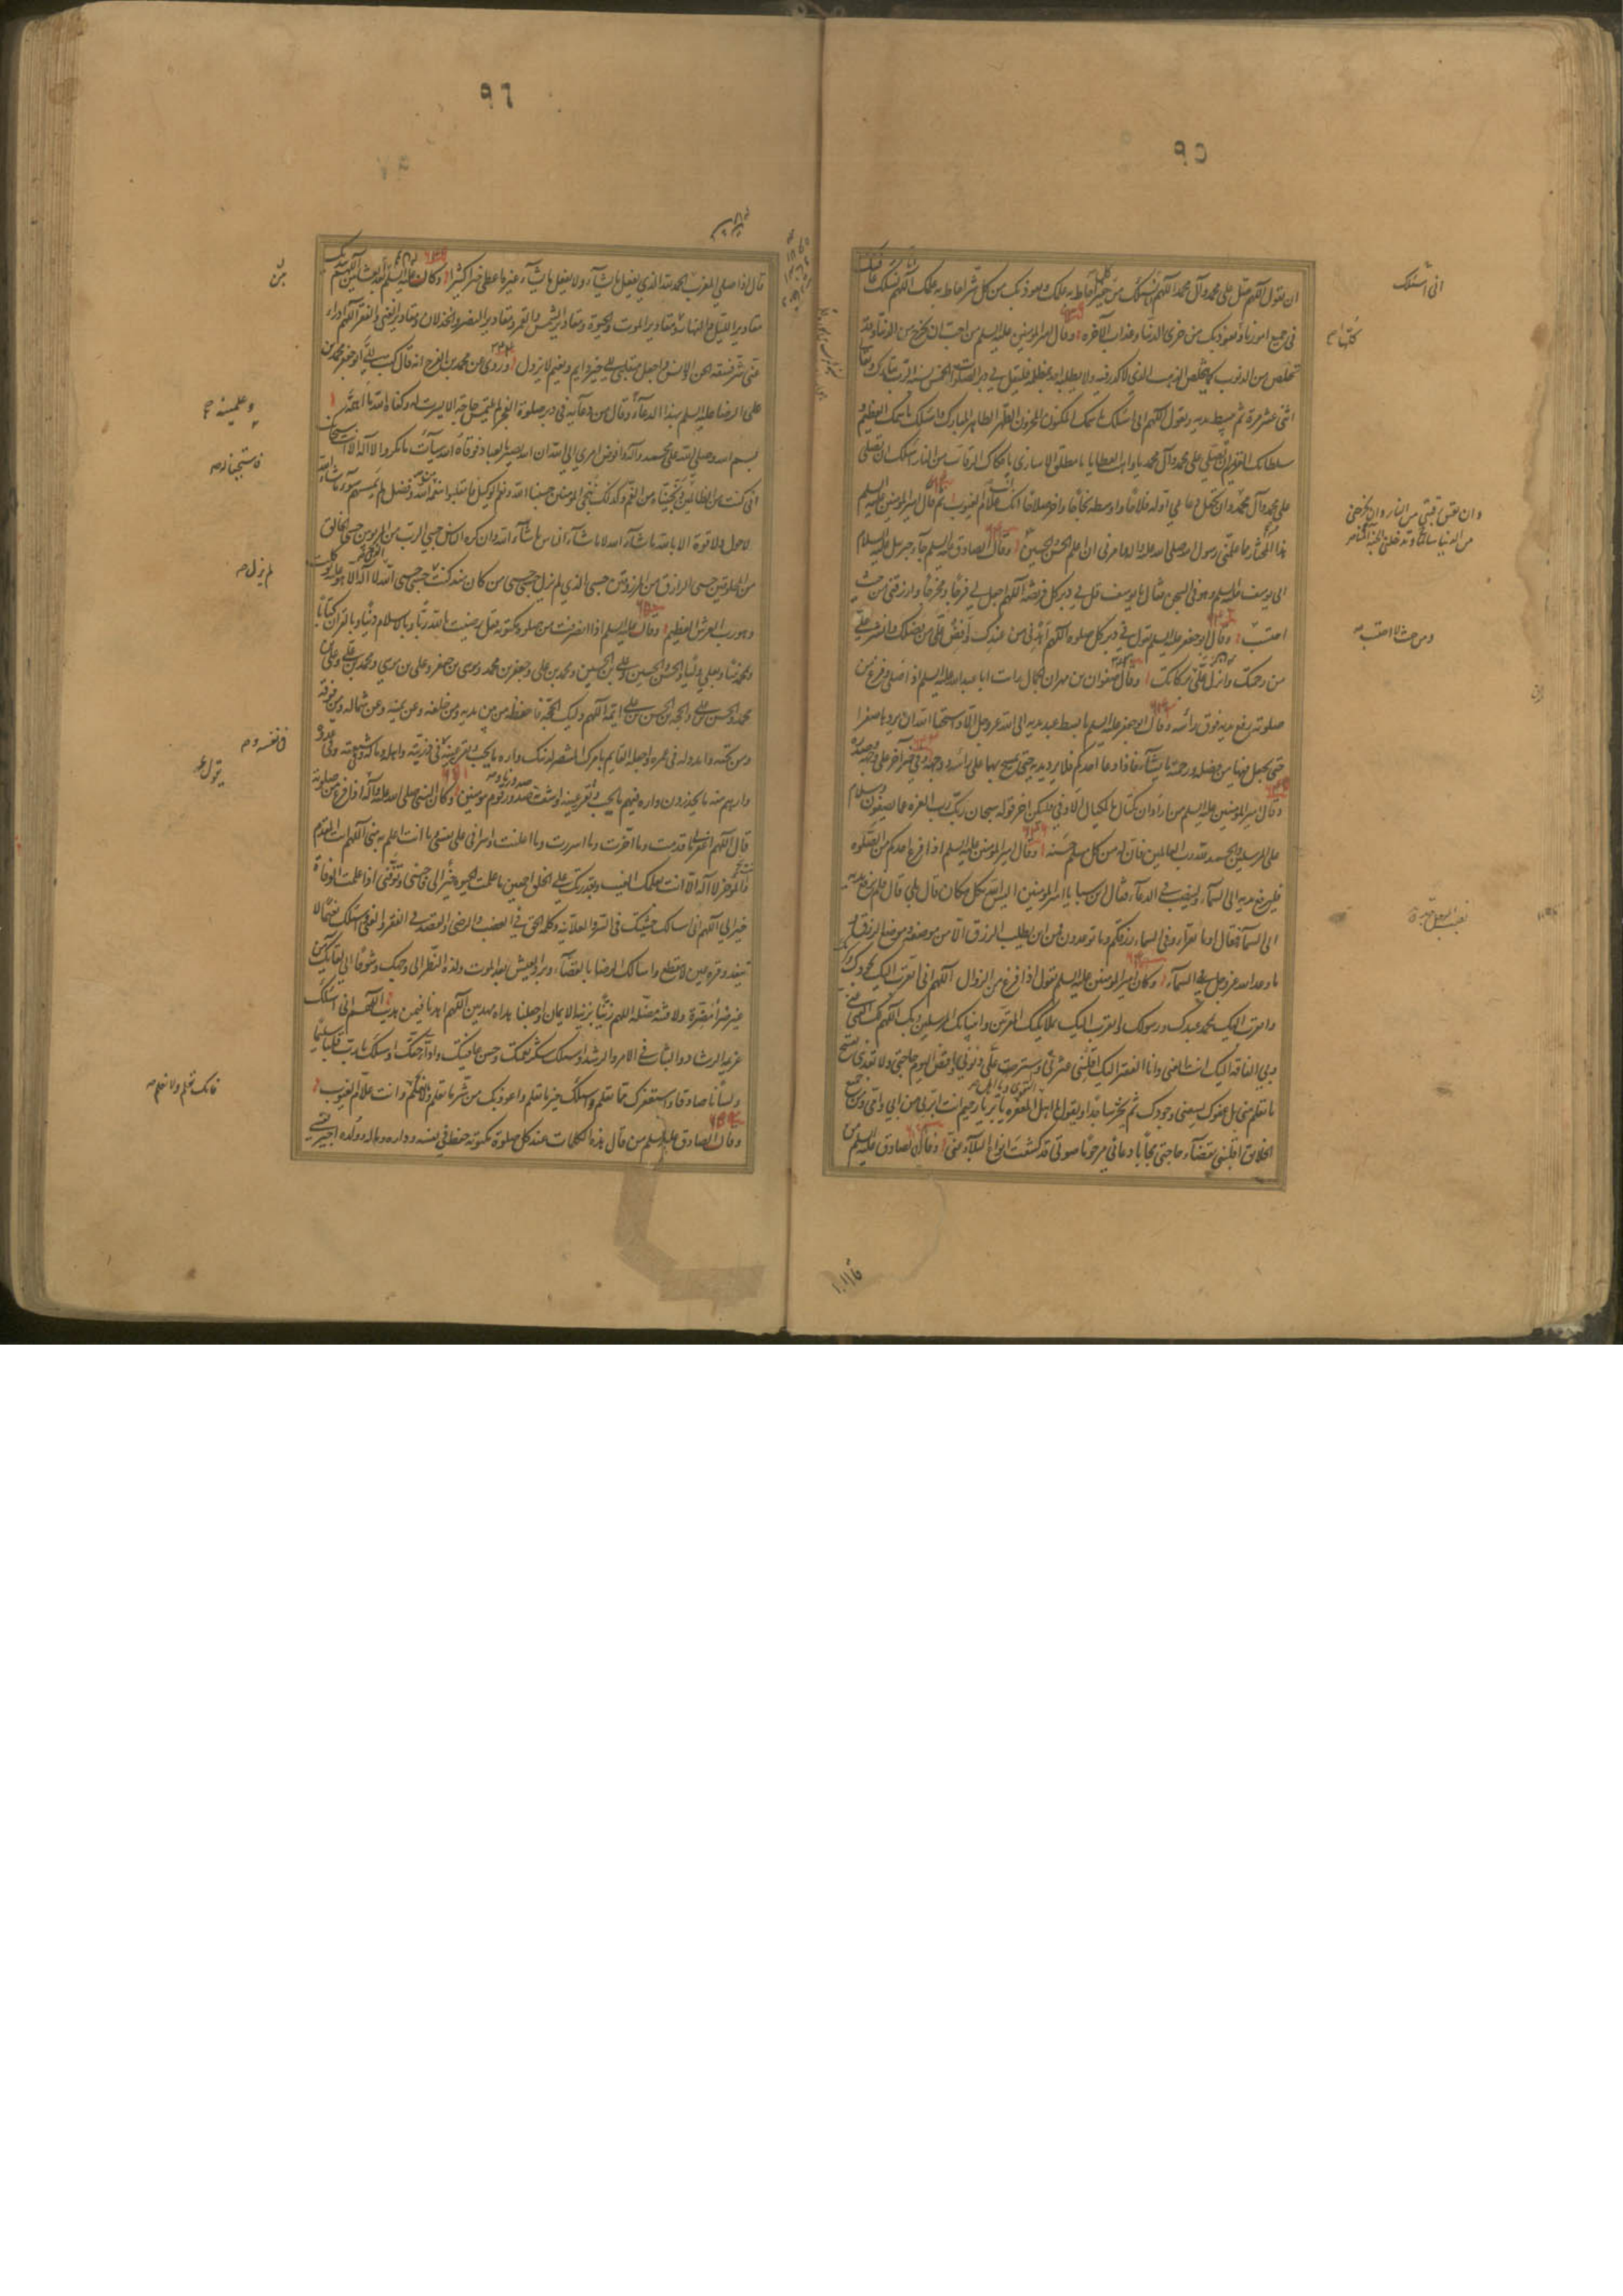 ٩٥
ان تقول اللهم صل على محمد وآل محمد اللهم انى اسئلك من كل خير احاط به علمك واعوذ بك من كل شر احاط به علمك اللهم انى اسئلك عافيتك
فى جميع امورى واعوذ بك من خزى الدنيا وعذاب الآخرة وقال امير المؤمنين عليه السلم من احب ان يخرج من الدنيا وقد
تخلص من الذنوب كما يتخلص الذهب الذى لا كدر فيه ولا يطلبه احد بمظلمة فليقل فى دبر الصلوات الخمس نسبة الرب تبارك وتعالى
اثنى عشر مرة ثم يبسط يديه ويقول اللهم انى اسئلك باسمك المكنون المخزون الطهر الطاهر المبارك واسئلك باسمك العظيم و
سلطانك القديم ان تصلى على محمد وآل محمد يا واهب العطايا يا مطلق الاسارى يا فكاك الرقاب من النار اسئلك ان تصلى
على محمد وآل محمد وان تجعل دعائى اوله فلاحا واوسطه نجاحا وآخره صلاحا انك انت علام الغيوب ثم قال امير المؤمنين عليه السلم
هذا من المخبيات مما علمنى رسول الله صلى الله عليه وآله وامرنى ان اعلم الحسن والحسين وقال الصادق عليه السلم جاء جبرئيل عليه السلام
الى يوسف عليه السلم وهو فى السجن فقال يا يوسف قل فى دبر كل فريضة اللهم اجعل لى فرجا ومخرجا وارزقنى من حيث
احتسب وقال ابو جعفر عليه السلم تقول فى دبر كل صلوة اللهم اهدنى من عندك وافض على من فضلك وانشر على
من رحمتك وانزل على من بركاتك وقال صفوان بن مهران الجمال رايت ابا عبد الله عليه السلم اذا صلى وفرغ من
صلوته رفع يديه فوق راسه وقال ابو جعفر عليه السلم ما بسط عبد يديه الى الله عز وجل الا واستحيا الله ان يردها صفرا
حتى يجعل فيها من فضله ورحمته ما يشاء فاذا دعا احدكم فلا يرد يديه حتى يمسح بهما على راسه ووجهه وفى خبر آخر على وجهه وصدره
وقال امير المؤمنين عليه السلم من اراد ان يكتال بالمكيال الاوفى فليكن آخر قوله سبحان ربك رب العزة عما يصفون وسلام
على المرسلين والحمد لله رب العالمين فان له من كل مسلم حسنة وقال امير المؤمنين عليه السلم اذا فرغ احدكم من الصلوة
فليرفع يديه الى السماء ولينصب فى الدعاء فقال ابن سبا يا امير المؤمنين اليس الله بكل مكان قال بلى قال فلم يرفع يديه
الى السماء فقال اوما تقرأ وفى السماء رزقكم وما توعدون فمن اين يطلب الرزق الا من موضعه وموضع الرزق و
ما وعد الله عز وجل فى السماء وكان امير المؤمنين عليه السلم يقول اذا فرغ من الزوال اللهم انى اتقرب اليك بجودك وكرمك
واتقرب اليك بمحمد عبدك ورسولك واتقرب اليك بملائكتك المقربين وانبيائك المرسلين وبك اللهم لك الغنى عنى
وبى الفاقة اليك انت الغنى وانا الفقير اليك اقلتنى عثرتى وسترت على ذنوبى فاقض اليوم حاجتى ولا تعذبنى بقبيح
ما تعلم منى بل عفوك يسعنى وجودك ثم يخر ساجدا ويقول يا اهل التقوى ويا اهل المغفرة يا بر يا رحيم انت ابر بى من ابى وامى ومن جميع
الخلائق اقلبنى بقضاء حاجتى مجابا دعائى مرحوما صوتى قد كشفت انواع البلاء عنى وقال الصادق عليه السلم من
انى اسئلك
وان تعتق رقبتى من النار وان تخرجنى
من الدنيا سالما وتدخلنى الجنة آمنا
ومن حيث لا احتسب
٩٦
قال اذا صلى المغرب الحمد لله الذى يفعل ما يشاء ولا يفعل ما يشاء غيره اعطى خيرا كثيرا وكان عليه السلم يقول بعد العشائين اللهم بيدك
مقادير الليل والنهار ومقادير الموت والحيوة ومقادير الشمس والقمر ومقادير النصر والخذلان ومقادير الغنى والفقر اللهم ادرأ
عنى شر فسقة الجن والانس واجعل منقلبى الى خير دايم ونعيم لا يزول وروى عن محمد بن الفرج انه قال كتب الى ابو جعفر محمد بن
على الرضا عليه السلم بهذا الدعاء وقال من دعا به فى دبر صلوة الفجر لم يلتمس حاجة الا يسرت له وكفاه الله ما اهمه
بسم الله وصلى الله على محمد وآله وافوض امرى الى الله ان الله بصير بالعباد فوقاه الله سيئات ما مكروا لا اله الا انت سبحانك
انى كنت من الظالمين ونجيناه من الغم وكذلك ننجى المؤمنين حسبنا الله ونعم الوكيل فانقلبوا بنعمة من الله وفضل لم يمسسهم سوء ما شاء الله
لا حول ولا قوة الا بالله ما شاء الله لا ما شاء الناس ما شاء الله وان كره الناس حسبى الرب من المربوبين حسبى الخالق
من المخلوقين حسبى الرازق من المرزوقين حسبى الذى لم يزل حسبى حسبى من كان منذ كنت حسبى حسبى الله لا اله الا هو عليه توكلت
وهو رب العرش العظيم وقال عليه السلم اذا انصرفت من صلوة مكتوبة فقل رضيت بالله ربا وبالاسلام دينا وبالقرآن كتابا
وبمحمد نبيا وبعلى وليا والحسن والحسين وعلى بن الحسين ومحمد بن على وجعفر بن محمد وموسى بن جعفر وعلى بن موسى ومحمد بن على وعلى بن
محمد والحسن بن على والحجة بن الحسن بن على ائمة اللهم وليك الحجة فاحفظه من بين يديه ومن خلفه وعن يمينه وعن شماله ومن فوقه
ومن تحته وامدد له فى عمره واجعله القايم بامرك المنتصر لدينك واره ما يحب وتقر به عينه فى ذريته واهله وماله وفى شيعته وفى عدوه
وارهم منه ما يحذرون واره فيهم ما يحب وتقر به عينه واشف به صدورنا وصدور قوم مؤمنين وكان النبى صلى الله عليه وآله اذا فرغ من صلوته
قال اللهم اغفر لى ما قدمت وما اخرت وما اسررت وما اعلنت واسرافى على نفسى وما انت اعلم به منى اللهم انت المقدم
وانت المؤخر لا اله الا انت بعلمك الغيب وبقدرتك على الخلق اجمعين ما علمت الحيوة خيرا لى فاحينى وتوفنى اذا علمت الوفاة
خيرا لى اللهم انى اسالك خشيتك فى السر والعلانية وكلمة الحق فى الغضب والرضى والقصد فى الفقر والغنى واسئلك نعيما لا
ينفد وقرة عين لا تنقطع واسالك الرضا بالقضاء وبرد العيش بعد الموت ولذة النظر الى وجهك وشوقا الى لقائك من
غير ضراء مضرة ولا فتنة مضلة اللهم زينا بزينة الايمان واجعلنا هداة مهديين اللهم اهدنا فيمن هديت اللهم انى اسئلك
عزيمة الرشاد والثبات فى الامر والرشد واسئلك شكر نعمتك وحسن عافيتك واداء حقك واسئلك يا رب قلبا سليما
ولسانا صادقا واستغفرك مما تعلم واسئلك خير ما تعلم واعوذ بك من شر ما تعلم وما لا نعلم وانت علام الغيوب
وقال الصادق عليه السلم من قال هذه الكلمات عند كل صلوة مكتوبة حفظ فى نفسه وداره وماله وولده اجير نفسى
فاستجبنا له
لم يزل
فى نفسه و
يقول
فانك تعلم ولا نعلم